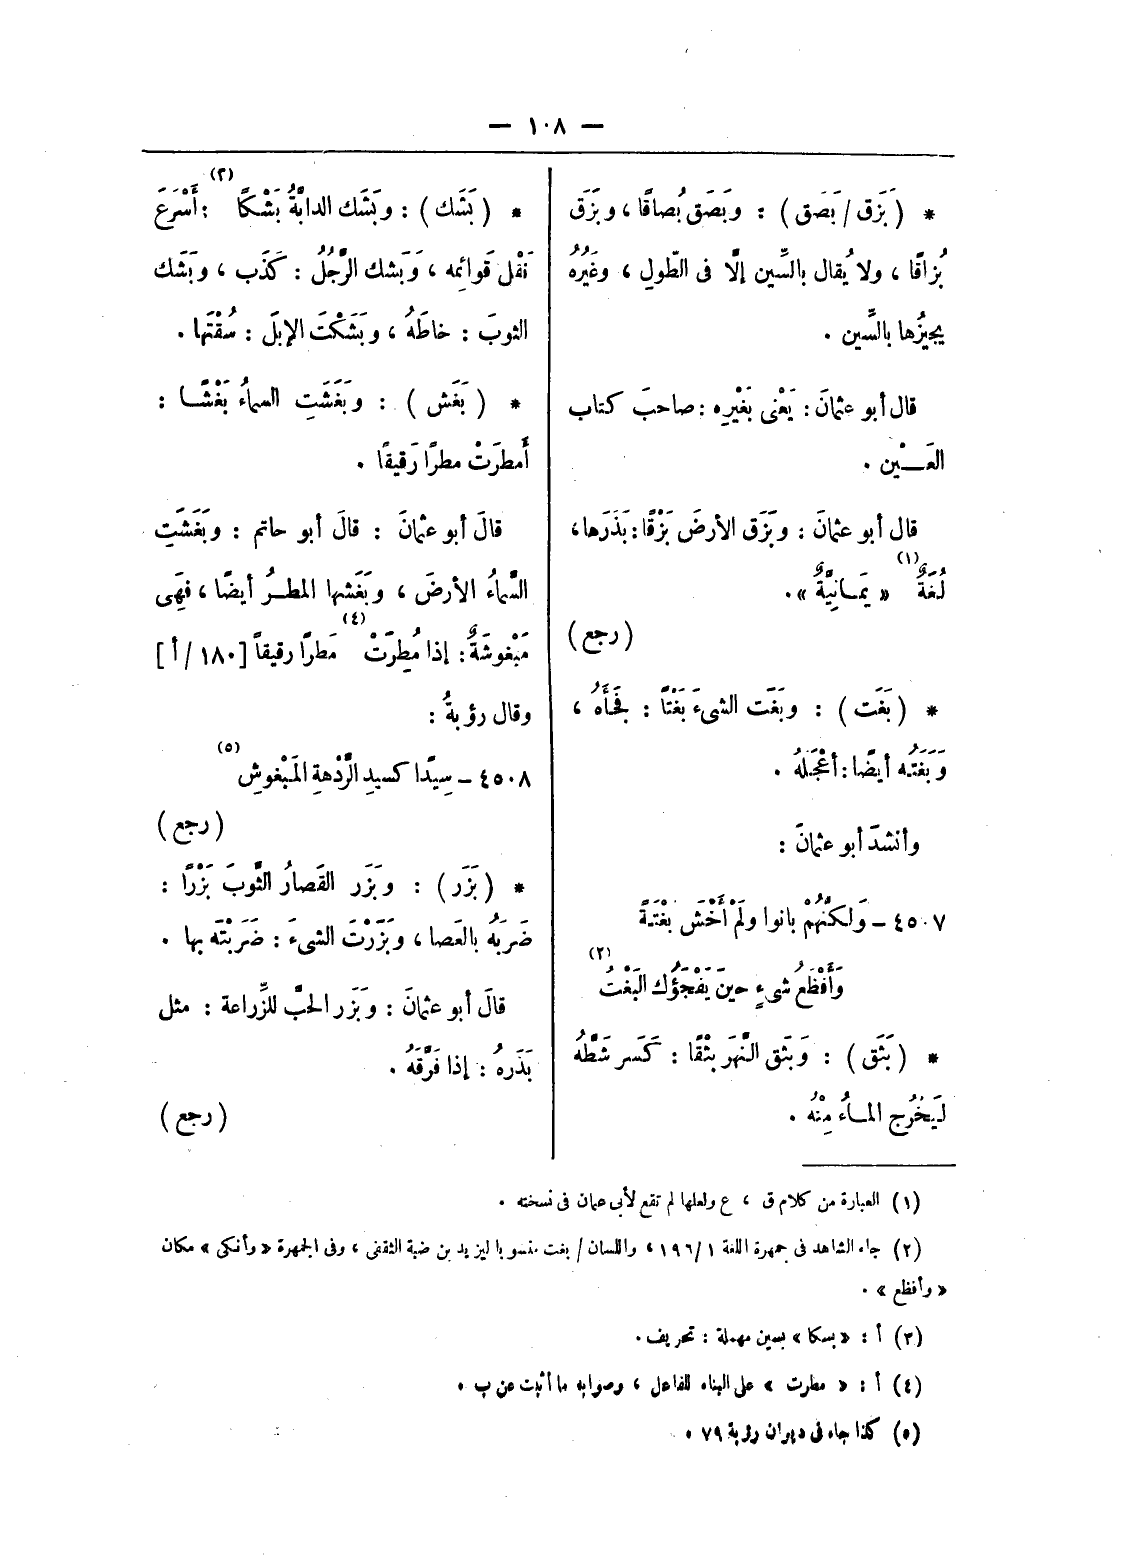 — ١٠٨ —
* ( بَزَق / بَصَق ) : وبَصَق بُصاقًا ، وبَزَق
بُزاقًا ، ولا يُقال بالسِّين إلَّا فى الطّولِ ، وغَيْرُهُ
يجيزُها بالسِّين .
قال أبو عثمانَ : يَعْنى بَغَيْرِه : صاحبَ كتاب
العَـــيْن .
قال أبو عثمانَ : وبَزَق الأرضَ بَزْقًا : بَذَرَها ،
لُغَةٌ (١) « يَمـانِيَّةٌ » .
( رجع )
* ( بَغَت ) : وبَغَت الشىءَ بَغْتًا : فَجَأَهُ ،
وَبَغَتَه أيضًا : أعْجَلهُ .
وأنشدَ أبو عثمانَ :
٤٥٠٧ – وَلكنَّهُمْ بانوا ولَمْ أَخْشَ بَغْتَةً
وَأَفْظَعُ شىءٍ حينَ يَفْجَؤُك البَغْتُ (٢)
* ( بَثَق ) : وَبَثَق النَّهرَ بثْقًا : كَسَر شَطَّهُ
لَيَخْرُج المـاءُ مِنْهُ .
* ( بَشَك ) : وبَشَك الدابَّةُ بَشْكًا (٣) : أَسْرَعَ
نَقْل قَوائِمه ، وَبَشك الرَّجُلُ : كَذَب ، وبَشَك
الثوبَ : خاطَهُ ، وبَشَكْتَ الإبلَ : سُقْتَها .
* ( بَغَش ) : وبَغَشَتِ السماءُ بَغْشًـا :
أَمطَرَتْ مطرًا رَقيقًا .
قالَ أبو عثمانَ : قالَ أبو حاتم : وبَغَشَتِ
السَّماءُ الأرضَ ، وبَغَشها المطـرُ أيضًا ، فهَى
مَبْغوشَةٌ : إذا مُطِرَتْ (٤) مَطرًا رقيقاً [ ١٨٠ / أ ]
وقال رؤبةُ :
٤٥٠٨ – سِيّدًا كسيدِ الرَّدْهةِ المَبْغوشِ (٥)
( رجع )
* ( بَزَر ) : وبَزَر القَصارُ الثَّوبَ بَزْرًا :
ضَرَبَهُ بالعَصا ، وبَزَرْتَ الشىءَ : ضَرَبتْه بها .
قالَ أبو عثمانَ : وبَزَر الحبَّ للزِّراعة : مثل
بَذَرهُ : إذا فَرَّقَهُ .
( رجع )
(١) العبارة من كلام ق ، ع ولعلها لم تقع لأبى عثمان فى نسخته .
(٢) جاء الشاهد فى جمهرة اللغة ١ / ١٩٦ ، واللسان / بغت منسوبا ليزيد بن ضبة الثقفى ، وفى الجمهرة « وأنكى » مكان
« وأفظع » .
(٣) أ : « بسكا » بسين مهملة : تحريف .
(٤) أ : « مطرت » على البناء للفاعل ، وصوابه ما أثبت عن ب .
(٥) كذا جاء فى ديوان رؤبة ٧٩ .